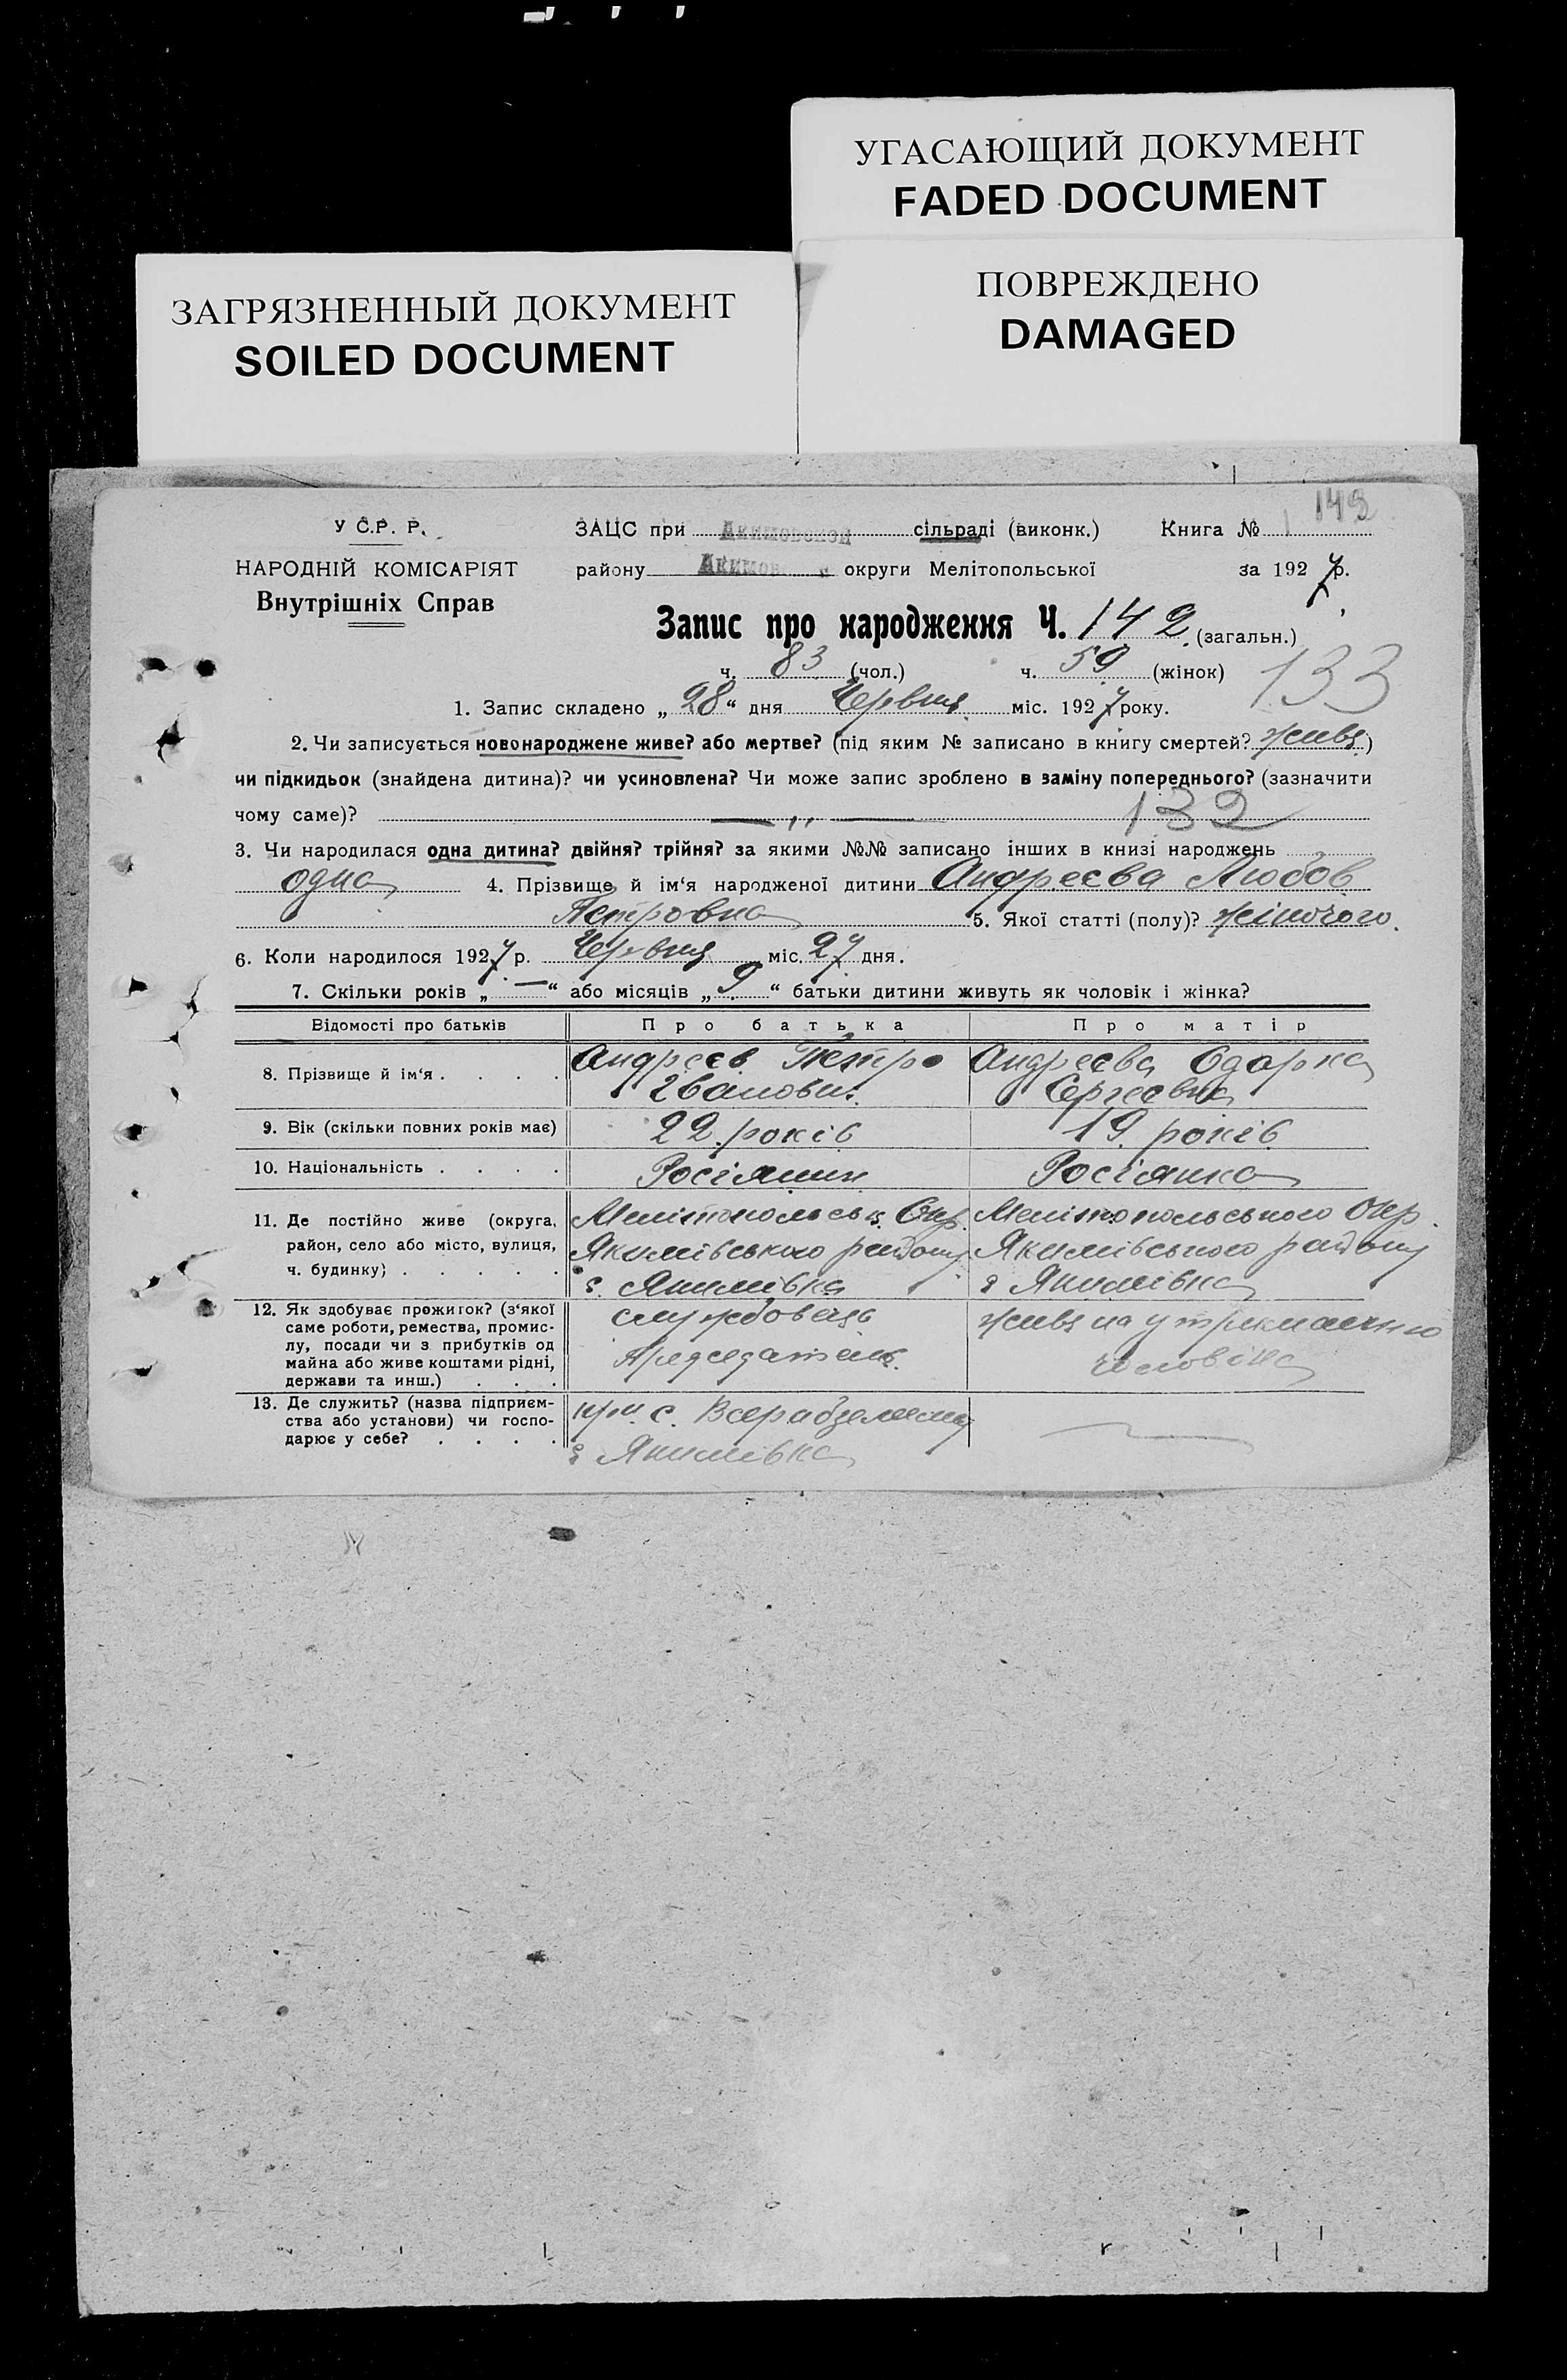 УГАСАЮЩИЙ ДОКУМЕНТ
FADED DOCUMENT
ЗАГРЯЗНЕННЫЙ ДОКУМЕНТ
SOILED DOCUMENT
ПОВРЕЖДЕНО
DAMAGED
142
У С.Р. Р.
ЗАЦС при Акимовской сільраді (виконк.) Книга №
НАРОДНІЙ КОМІСАРІЯТ
району Акимов округи Мелітопольської за 1927 р.
Внутрішніх Справ
Запис про народження Ч. 142 (загальн.)
ч. 83 (чол.) ч. 59 (жінок) 133
1. Запис складено „ 28 “ дня Червня міс. 1927 року.
2. Чи записується новонароджене живе? або мертве? (під яким № записано в книгу смертей? живе)
чи підкидьок (знайдена дитина)? чи усиновлена? Чи може запис зроблено в заміну попереднього? (зазначити
чому саме)? — „ — 132
3. Чи народилася одна дитина? двійня? трійня? за якими №№ записано інших в книзі народжень
одна 4. Прізвище й ім‘я народженої дитини Андреєва Любов
Петровна 5. Якої статті (полу)? жіночого.
6. Коли народилося 1927 р. Червня міс. 27 дня.
7. Скільки років „ — “ або місяців „ 9 “ батьки дитини живуть як чоловік і жінка?
Відомості про батьків Про батька Про матір
8. Прізвище й ім‘я . . . .
Андреєв Петро
Іванович
Андреєва Одарка
Сергеевна
9. Вік (скільки повних років має) 22 років 19 років
10. Національність . . . . Росіянин Росіянка
11. Де постійно живе (округа,
район, село або місто, вулиця,
ч. будинку) . . . . .
Мелітопольськ. Окр.
Якимівського району
с. Якимівка
Мелітопольського Окр.
Якимівського району
с Якимівка
12. Як здобуває прожиток? (з‘якої
саме роботи, ремества, промис-
лу, посади чи з прибутків од
майна або живе коштами рідні,
держави та инш.) . . .
службовець
председатель.
живе на утриманню
чоловіка
13. Де служить? (назва підприєм-
ства або установи) чи госпо-
дарює у себе? . . . .
при с. Всерабземлеса
с Якимівка
—